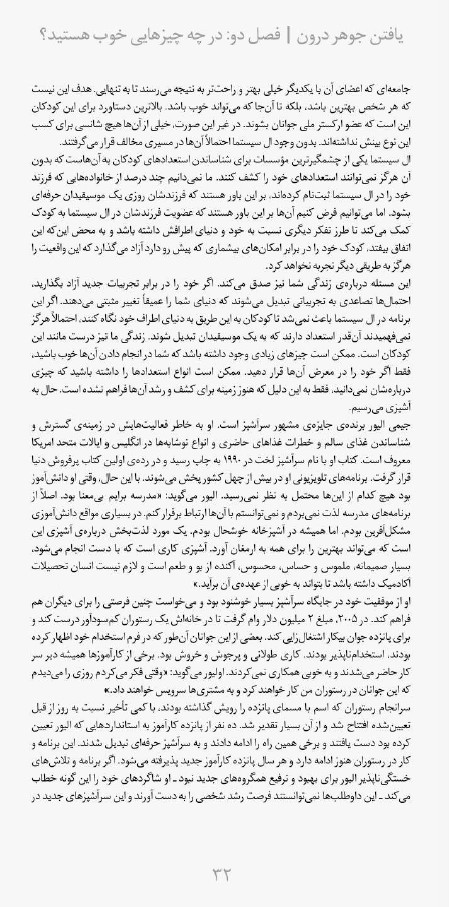 یافتن جوهر درون | فصل دو: در چه چیزهایی خوب هستید؟
جامعه‌ای که اعضای آن با یکدیگر خیلی بهتر و راحت‌تر به نتیجه می‌رسند تا به تنهایی. هدف این نیست
که هر شخص بهترین باشد، بلکه تا آن‌جا که می‌تواند خوب باشد. بالاترین دستاورد برای این کودکان
این است که عضو ارکستر ملی جوانان بشوند. در غیر این صورت، خیلی از آن‌ها هیچ شانسی برای کسب
این نوع بینش نداشته‌اند. بدون وجود ال سیستما احتمالاً آن‌ها در مسیری مخالف قرار می‌گرفتند.
ال سیستما یکی از چشمگیرترین مؤسسات برای شناساندن استعدادهای کودکان به آن‌هاست که بدون
آن هرگز نمی‌توانند استعدادهای خود را کشف کنند. ما نمی‌دانیم چند درصد از خانواده‌هایی که فرزند
خود را در ال سیستما ثبت‌نام کرده‌اند، بر این باور هستند که فرزندشان روزی یک موسیقیدان حرفه‌ای
بشود. اما می‌توانیم فرض کنیم آن‌ها بر این باور هستند که عضویت فرزندشان در ال سیستما به کودک
کمک می‌کند تا طرز تفکر دیگری نسبت به خود و دنیای اطرافش داشته باشد و به محض این‌که این
اتفاق بیفتد، کودک خود را در برابر امکان‌های بیشماری که پیش رو دارد آزاد می‌گذارد که این واقعیت را
هرگز به طریقی دیگر تجربه نخواهد کرد.
این مسئله درباره‌ی زندگی شما نیز صدق می‌کند. اگر خود را در برابر تجربیات جدید آزاد بگذارید،
احتمال‌ها تصاعدی به تجربیاتی تبدیل می‌شوند که دنیای شما را عمیقاً تغییر مثبتی می‌دهند. اگر این
برنامه در ال سیستما باعث نمی‌شد تا کودکان به این طریق به دنیای اطراف خود نگاه کنند، احتمالاً هرگز
نمی‌فهمیدند آن‌قدر استعداد دارند که به یک موسیقیدان تبدیل شوند. زندگی ما نیز درست مانند این
کودکان است. ممکن است چیزهای زیادی وجود داشته باشد که شما در انجام دادن آن‌ها خوب باشید،
فقط اگر خود را در معرض آن‌ها قرار دهید. ممکن است انواع استعدادها را داشته باشید که چیزی
درباره‌شان نمی‌دانید، فقط به این دلیل که هنوز زمینه برای کشف و رشد آن‌ها فراهم نشده است. حال به
آشپزی می‌رسیم.
جیمی الیور برنده‌ی جایزه‌ی مشهور سرآشپز است. او به خاطر فعالیت‌هایش در زمینه‌ی گسترش و
شناساندن غذای سالم و خطرات غذاهای حاضری و انواع نوشابه‌ها در انگلیس و ایالات متحد امریکا
معروف است. کتاب او با نام سرآشپز لخت در ۱۹۹۰ به چاپ رسید و در رده‌ی اولین کتاب پرفروش دنیا
قرار گرفت. برنامه‌های تلویزیونی او در بیش از چهل کشور پخش می‌شوند. با این حال، وقتی او دانش‌آموز
بود هیچ کدام از این‌ها محتمل به نظر نمی‌رسید. الیور می‌گوید: «مدرسه برایم بی‌معنا بود. اصلاً از
برنامه‌های مدرسه لذت نمی‌بردم و نمی‌توانستم با آن‌ها ارتباط برقرار کنم. در بسیاری مواقع دانش‌آموزی
مشکل‌آفرین بودم. اما همیشه در آشپزخانه خوشحال بودم. یک مورد لذت‌بخش درباره‌ی آشپزی این
است که می‌تواند بهترین را برای همه به ارمغان آورد. آشپزی کاری است که با دست انجام می‌شود،
بسیار صمیمانه، ملموس و حساس، محسوس، آکنده از بو و طعم است و لازم نیست انسان تحصیلات
آکادمیک داشته باشد تا بتواند به خوبی از عهده‌ی آن برآید.»
او از موفقیت خود در جایگاه سرآشپز بسیار خوشنود بود و می‌خواست چنین فرصتی را برای دیگران هم
فراهم کند. در ۲۰۰۵، مبلغ ۲ میلیون دلار وام گرفت تا در خانه‌اش یک رستوران کم‌سودآور درست کند و
برای پانزده جوان بیکار اشتغال‌زایی کند. بعضی از این جوانان آن‌طور که در فرم استخدام خود اظهار کرده
بودند، استخدام‌ناپذیر بودند. کاری طولانی و پرجوش و خروش بود. برخی از کارآموزها همیشه دیر سر
کار حاضر می‌شدند و به خوبی همکاری نمی‌کردند. اولیور می‌گوید: «وقتی فکر می‌کردم روزی را می‌دیدم
که این جوانان در رستوران من کار خواهند کرد و به مشتری‌ها سرویس خواهند داد.»
سرانجام رستوران که اسم با مسمای پانزده را رویش گذاشته بودند، با کمی تأخیر نسبت به روز از قبل
تعیین‌شده افتتاح شد و از آن بسیار تقدیر شد. ده نفر از پانزده کارآموز به استانداردهایی که الیور تعیین
کرده بود دست یافتند و برخی همین راه را ادامه دادند و به سرآشپز حرفه‌ای تبدیل شدند. این برنامه و
کار در رستوران هنوز ادامه دارد و هر سال پانزده کارآموز جدید پذیرفته می‌شود. اگر برنامه و تلاش‌های
خستگی‌ناپذیر الیور برای بهبود و ترفیع همگروه‌های جدید نبود ـ او شاگردهای خود را این گونه خطاب
می‌کند ـ این داوطلب‌ها نمی‌توانستند فرصت رشد شخصی را به دست آورند و این سرآشپزهای جدید در
۳۲